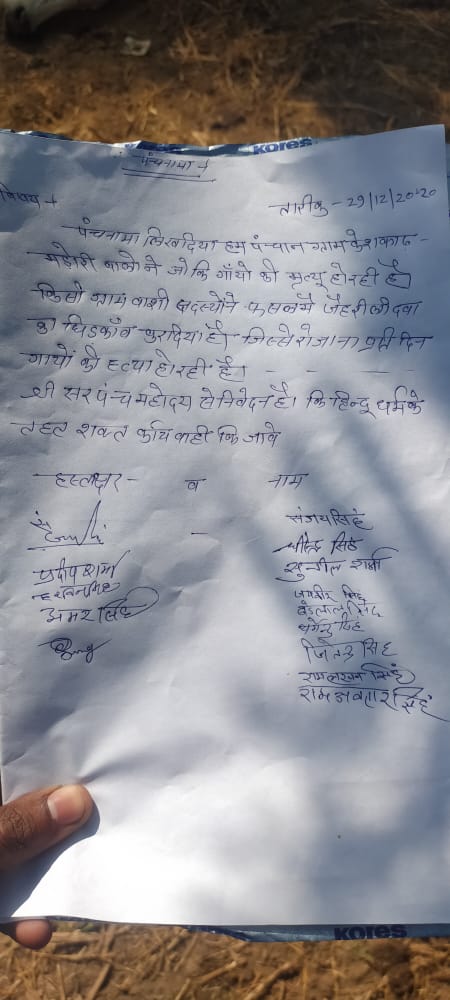 kores
पंचनामा
विषय
तारीक - 29/12/2020
पंचनामा लिखदिया हम पंचान ग्राम
वालो ने जो कि गायो की मृत्यू हो रही है
किसी ग्राम वाशी सदस्योंने फसलमें जैहरीली दवा
का छिडकाँव करदिया है। जिस्से रोजाना प्रती दिन
गायो की हत्या हो रही है।
श्री सरपंच महोदय से निवेदन है। कि हिन्दू धर्म के
तहत शक्त कार्यवाही कि जावे
हस्ताक्षर - व नाम
संजयसिंह
सिंह
प्रदीप शर्मा
सुनील शर्मा
अमर सिंह
सिंह
जितेन्द्र सिंह
रामलखन सिंह
रामअवतार सिंह
kores